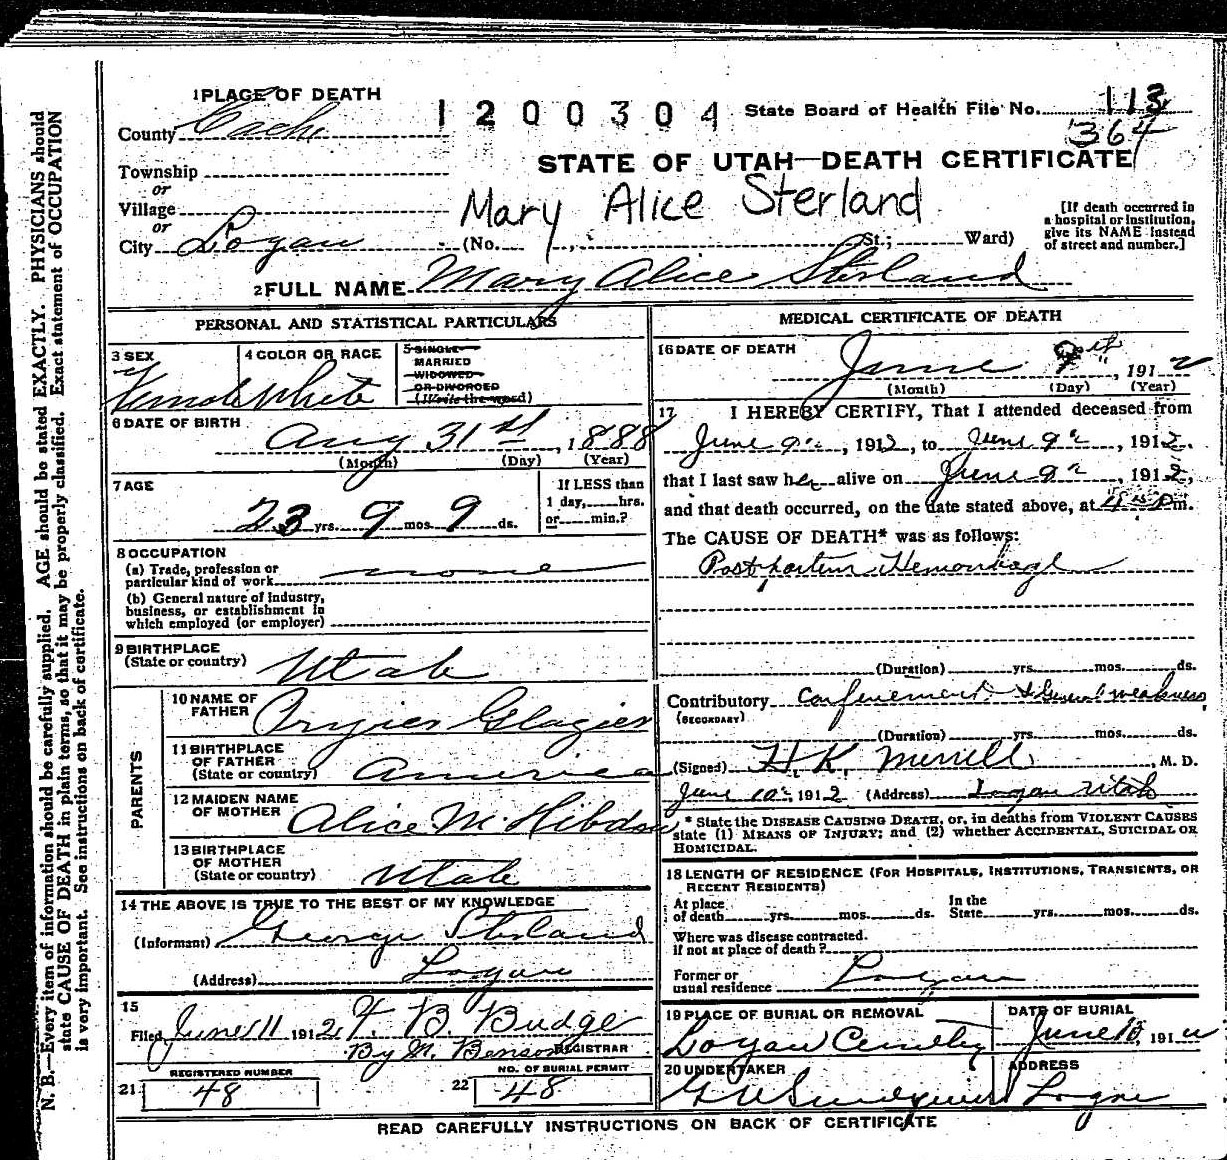 1 PLACE OF DEATH
1200304
State Board of Health File No. 113
364
County Cache
STATE OF UTAH—DEATH CERTIFICATE
Township
or
Village
Mary Alice Sterland
or
City Logan (No. St.; Ward)
[If death occurred in a hospital or institution, give its NAME instead of street and number.]
2 FULL NAME Mary Alice Sterland
PERSONAL AND STATISTICAL PARTICULARS
3 SEX
Female
4 COLOR OR RACE
White
5 SINGLE
MARRIED
WIDOWED
OR DIVORCED
(Write the word)
6 DATE OF BIRTH
Aug 31st, 1888
(Month) (Day) (Year)
7 AGE
23 yrs. 9 mos. 9 ds.
If LESS than
1 day, hrs.
or min.?
8 OCCUPATION
(a) Trade, profession or
particular kind of work none
(b) General nature of industry,
business, or establishment in
which employed (or employer)
9 BIRTHPLACE
(State or country) Utah
PARENTS
10 NAME OF
FATHER Glazier
11 BIRTHPLACE
OF FATHER
(State or country) America
12 MAIDEN NAME
OF MOTHER Alice M
13 BIRTHPLACE
OF MOTHER
(State or country) Utah
14 THE ABOVE IS TRUE TO THE BEST OF MY KNOWLEDGE
(Informant) George Sterland
(Address) Logan
15
Filed June 11 1912 F. B. Budge
By N. Benson REGISTRAR
REGISTERED NUMBER
21 48
NO. OF BURIAL PERMIT
22 48
MEDICAL CERTIFICATE OF DEATH
16 DATE OF DEATH
June 9th, 1912
(Month) (Day) (Year)
17 I HEREBY CERTIFY, That I attended deceased from
June 9th, 1912, to June 9th, 1912,
that I last saw her alive on June 9th, 1912,
and that death occurred, on the date stated above, at 4 Pm.
The CAUSE OF DEATH* was as follows:
Postpartum Hemorrhage
(Duration) yrs. mos. ds.
Contributory confinement & General weakness
(SECONDARY)
(Duration) yrs. mos. ds.
(Signed) H. K. Merrill, M. D.
June 10th, 1912 (Address) Logan Utah
* State the DISEASE CAUSING DEATH, or, in deaths from VIOLENT CAUSES
state (1) MEANS OF INJURY; and (2) whether ACCIDENTAL, SUICIDAL OR
HOMICIDAL.
18 LENGTH OF RESIDENCE (FOR HOSPITALS, INSTITUTIONS, TRANSIENTS, OR
RECENT RESIDENTS)
At place
of death yrs. mos. ds.
In the
State yrs. mos. ds.
Where was disease contracted.
if not at place of death?
Former or
usual residence Logan
19 PLACE OF BURIAL OR REMOVAL
Logan Cemetery
DATE OF BURIAL
June 191
20 UNDERTAKER
ADDRESS
Logan
READ CAREFULLY INSTRUCTIONS ON BACK OF CERTIFICATE
N. B.—Every item of information should be carefully supplied. AGE should be stated EXACTLY. PHYSICIANS should
state CAUSE OF DEATH in plain terms, so that it may be properly classified. Exact statement of OCCUPATION
is very important. See instructions on back of certificate.